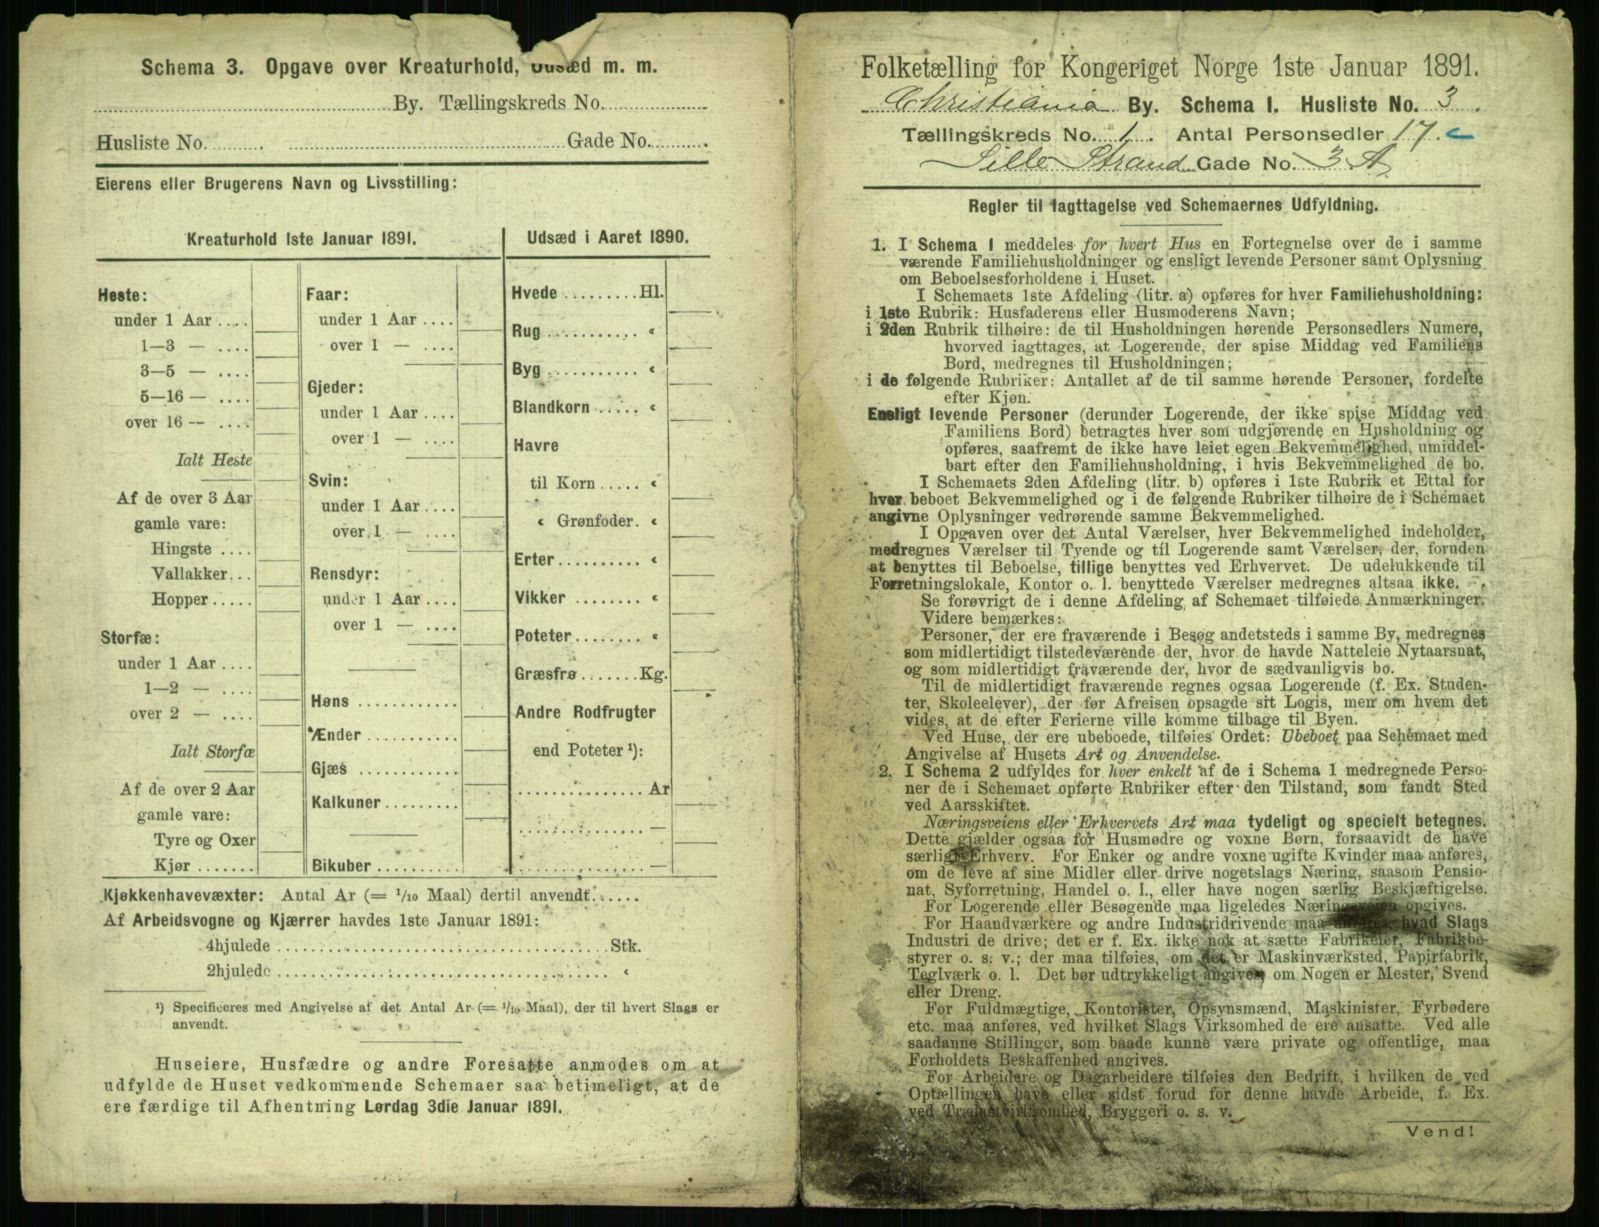 Schema 3. Opgave over Kreaturhold, Udsæd m. m.
By. Tællingskreds No.
Husliste No. Gade No.
Eierens eller Brugerens Navn og Livsstilling:
Kreaturhold 1ste Januar 1891.
Heste:
under 1 Aar ....
1—3 — ....
3—5 — ....
5—16 — ....
over 16 — ....
Ialt Heste
Af de over 3 Aar
gamle vare:
Hingste ....
Vallakker...
Hopper .....
Storfæ:
under 1 Aar ....
1—2 — ....
over 2 — ....
Ialt Storfæ
Af de over 2 Aar
gamle vare:
Tyre og Oxer
Kjør ........
Faar:
under 1 Aar ....
over 1 — ....
Gjeder:
under 1 Aar ....
over 1 — ....
Svin:
under 1 Aar ....
over 1 — ....
Rensdyr:
under 1 Aar ....
over 1 — ....
Høns ...........
Ænder ...........
Gjæs ...........
Kalkuner ........
Bikuber ........
Udsæd i Aaret 1890.
Hvede ........ Hl.
Rug .......... «
Byg .......... «
Blandkorn ..... «
Havre
til Korn ..... «
« Grønfoder. «
Erter ......... «
Vikker ........ «
Poteter ........ «
Græsfrø ....... Kg.
Andre Rodfrugter
end Poteter ¹):
.............. Ar
.............. —
.............. —
Kjøkkenhavevæxter: Antal Ar (= 1/10 Maal) dertil anvendt......
Af Arbeidsvogne og Kjærrer havdes 1ste Januar 1891:
4hjulede ........ Stk.
2hjulede ........ «
¹) Specificeres med Angivelse af det Antal Ar (= 1/10 Maal), der til hvert Slags er
anvendt.
Huseiere, Husfædre og andre Foresatte anmodes om at
udfylde de Huset vedkommende Schemaer saa betimeligt, at de
ere færdige til Afhentning Lørdag 3die Januar 1891.
Folketælling for Kongeriget Norge 1ste Januar 1891.
Christiania By. Schema I. Husliste No. 3.
Tællingskreds No. 1. Antal Personsedler 17.
Lille Strand Gade No. 3 A
Regler til Iagttagelse ved Schemaernes Udfyldning.
1. I Schema 1 meddeles for hvert Hus en Fortegnelse over de i samme
værende Familiehusholdninger og ensligt levende Personer samt Oplysning
om Beboelsesforholdene i Huset.
I Schemaets 1ste Afdeling (litr. a) opføres for hver Familiehusholdning:
i 1ste Rubrik: Husfaderens eller Husmoderens Navn;
i 2den Rubrik tilhøire: de til Husholdningen hørende Personsedlers Numere,
hvorved iagttages, at Logerende, der spise Middag ved Familiens
Bord, medregnes til Husholdningen;
i de følgende Rubriker: Antallet af de til samme hørende Personer, fordelte
efter Kjøn.
Ensligt levende Personer (derunder Logerende, der ikke spise Middag ved
Familiens Bord) betragtes hver som udgjørende en Husholdning og
opføres, saafremt de ikke have leiet egen Bekvemmelighed, umiddel-
bart efter den Familiehusholdning, i hvis Bekvemmelighed de bo.
I Schemaets 2den Afdeling (litr. b) opføres i 1ste Rubrik et Ettal for
hver beboet Bekvemmelighed og i de følgende Rubriker tilhøire de i Schemaet
angivne Oplysninger vedrørende samme Bekvemmelighed.
I Opgaven over det Antal Værelser, hver Bekvemmelighed indeholder,
medregnes Værelser til Tyende og til Logerende samt Værelser, der, foruden
at benyttes til Beboelse, tillige benyttes ved Erhvervet. De udelukkende til
Forretningslokale, Kontor o. l. benyttede Værelser medregnes altsaa ikke.
Se forøvrigt de i denne Afdeling af Schemaet tilføiede Anmærkninger.
Videre bemærkes:
Personer, der ere fraværende i Besøg andetsteds i samme By, medregnes
som midlertidigt tilstedeværende der, hvor de havde Natteleie Nytaarsnat,
og som midlertidigt fraværende der, hvor de sædvanligvis bo.
Til de midlertidigt fraværende regnes ogsaa Logerende (f. Ex. Studen-
ter, Skoleelever), der før Afreisen opsagde sit Logis, men om hvem det
vides, at de efter Ferierne ville komme tilbage til Byen.
Ved Huse, der ere ubeboede, tilføies Ordet: Ubeboet paa Schemaet med
Angivelse af Husets Art og Anvendelse.
2. I Schema 2 udfyldes for hver enkelt af de i Schema 1 medregnede Perso-
ner de i Schemaet opførte Rubriker efter den Tilstand, som fandt Sted
ved Aarsskiftet.
Næringsveiens eller Erhvervets Art maa tydeligt og specielt betegnes.
Dette gjælder ogsaa for Husmødre og voxne Børn, forsaavidt de have
særligt Erhverv. For Enker og andre voxne ugifte Kvinder maa anføres,
om de leve af sine Midler eller drive nogetslags Næring, saasom Pensio-
nat, Syforretning, Handel o. l., eller have nogen særlig Beskjæftigelse.
For Logerende eller Besøgende maa ligeledes Næringsveien opgives.
For Haandværkere og andre Industridrivende maa anføres, hvad Slags
Industri de drive; det er f. Ex. ikke nok at sætte Fabrikeier, Fabrikbe-
styrer o. s. v.; der maa tilføies, om det er Maskinværksted, Papirfabrik,
Teglværk o. l. Det bør udtrykkeligt angives, om Nogen er Mester, Svend
eller Dreng.
For Fuldmægtige, Kontorister, Opsynsmænd, Maskinister, Fyrbødere
etc. maa anføres, ved hvilket Slags Virksomhed de ere ansatte. Ved alle
saadanne Stillinger, som baade kunne være private og offentlige, maa
Forholdets Beskaffenhed angives.
For Arbeidere og Dagarbeidere tilføies den Bedrift, i hvilken de ved
Optællingen have eller sidst forud for denne havde Arbeide, f. Ex.
ved Trælastvirksomhed, Bryggeri o. s. v.
Vend!